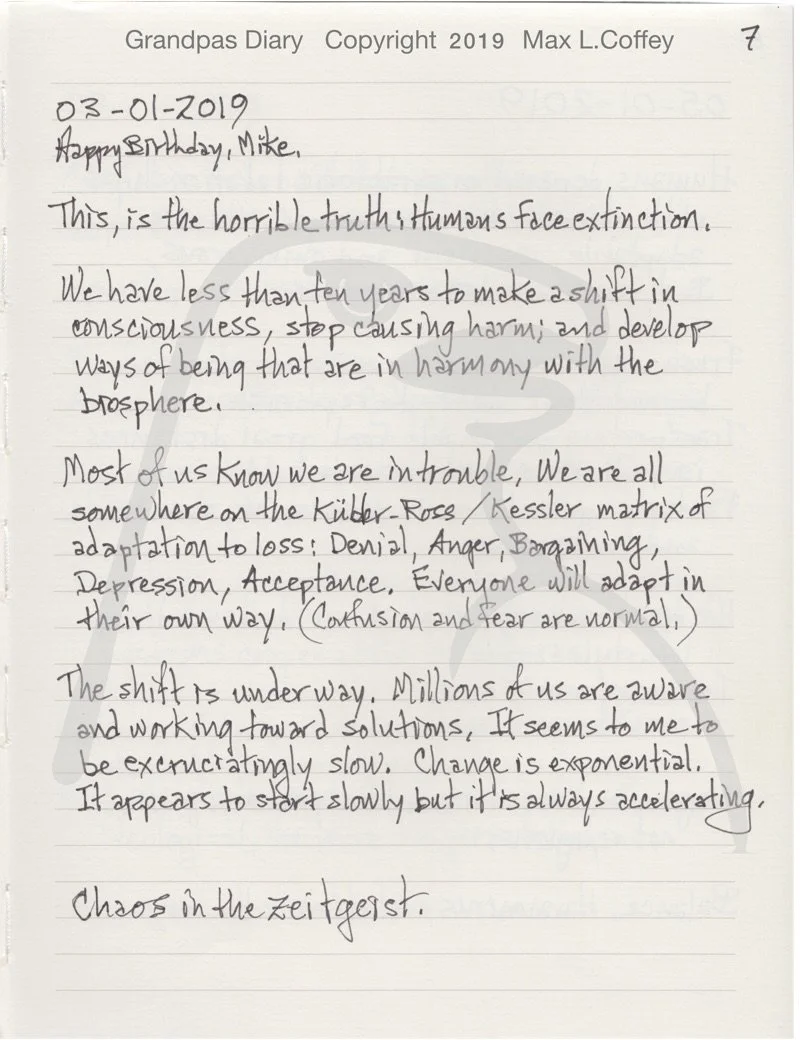 Grandpas Diary Copyright 2019 Max L.Coffey 7
03-01-2019
Happy Birthday, Mike.
This, is the horrible truth: Humans face extinction.
We have less than ten years to make a shift in
consciousness, stop causing harm; and develop
ways of being that are in harmony with the
biosphere.
Most of us know we are in trouble, We are all
somewhere on the Kübler-Ross / Kessler matrix of
adaptation to loss: Denial, Anger, Bargaining,
Depression, Acceptance. Everyone will adapt in
their own way. (Confusion and fear are normal.)
The shift is underway. Millions of us are aware
and working toward solutions, It seems to me to
be excruciatingly slow. Change is exponential.
It appears to start slowly but it is always accelerating.
Chaos in the zeitgeist.